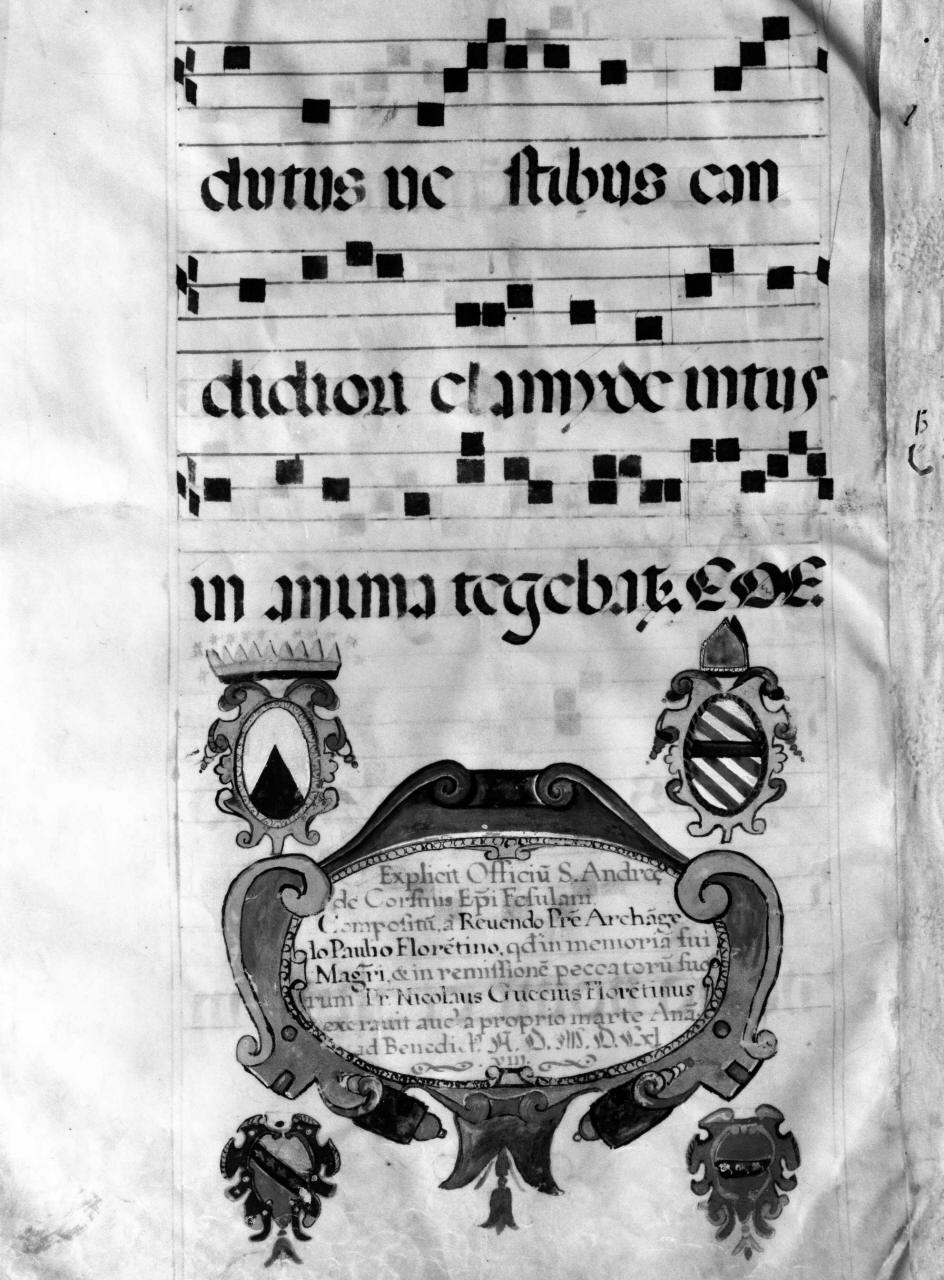 dutus ue stibus can
didiori clamyde intus
in anima tegebat. EOE.
Explicit Officiū S. Andreę
de Corsinis Ep̄i Fesulani.
Compositū, a Reuendo Prē Archāge
lo Paulio Florētino, qd in memoriā sui
Magr̄i, & in remissionē peccatorū suo
rum Fr. Nicolaus Guccius Florētinus
exarauit a proprio marte
ad
VIII.
B
C